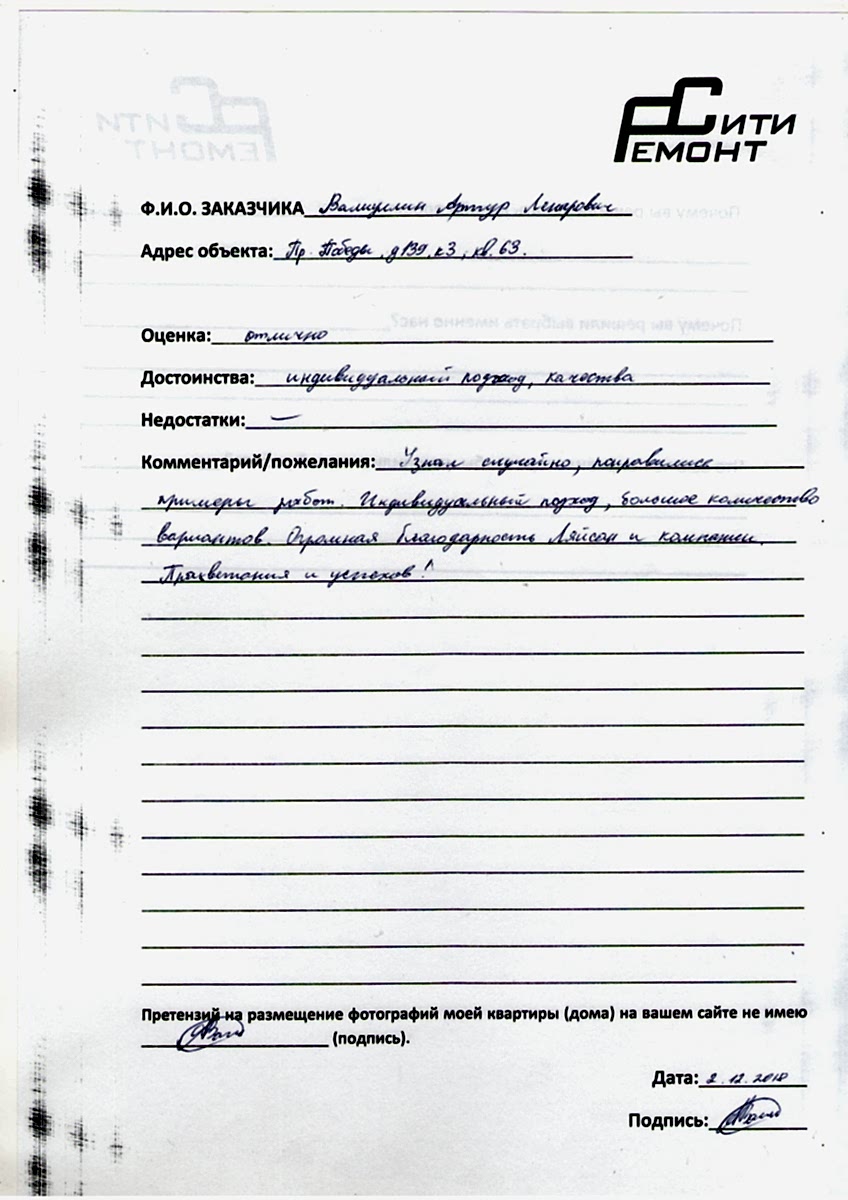 СИТИ
РЕМОНТ
Ф.И.О. ЗАКАЗЧИКА Валиуллин Артур Ленарович
Адрес объекта: Пр. Победы, д139, к3, кв. 63.
Оценка: отлично
Достоинства: индивидуальный подход, качества
Недостатки: —
Комментарий/пожелания: Узнал случайно, понравились
примеры работ. Индивидуальный подход, большое количество
вариантов. Огромная благодарность Ляйсан и компании.
Процветания и успехов!
Претензий на размещение фотографий моей квартиры (дома) на вашем сайте не имею
(подпись).
Дата: 2.12.2018
Подпись: